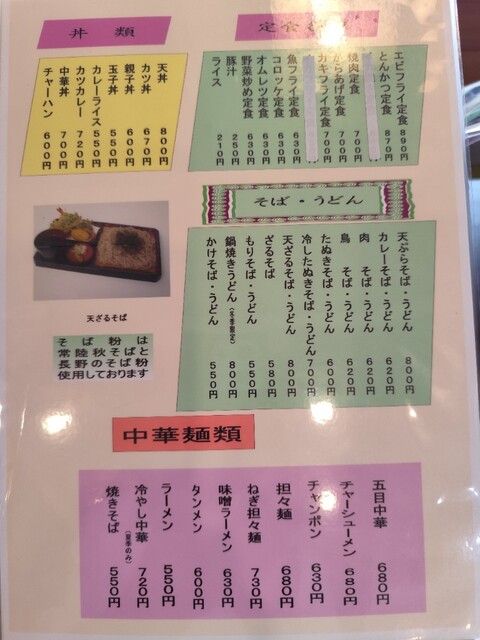 丼類
天丼 800円
カツ丼 670円
親子丼 600円
玉子丼 550円
カレーライス 550円
カツカレー 720円
中華丼 700円
チャーハン 600円
定食
エビフライ定食 890円
とんかつ定食 870円
焼肉定食 700円
からあげ定食 700円
カキフライ定食 700円
魚フライ定食 630円
コロッケ定食 630円
オムレツ定食 630円
野菜炒め定食 630円
豚汁 250円
ライス 210円
そば・うどん
天ぷらそば・うどん 800円
カレーそば・うどん 620円
肉そば・うどん 620円
鳥そば・うどん 620円
たぬきそば・うどん 600円
冷したぬきそば・うどん 700円
天ざるそば・うどん 800円
ざるそば 580円
もりそば・うどん 550円
鍋焼きうどん(冬季限定) 800円
かけそば・うどん 550円
天ざるそば
そば粉は
常陸秋そばと
長野のそば粉
使用しております
中華麺類
五目中華 680円
チャーシューメン 680円
チャンポン 630円
担々麺 680円
ねぎ担々麺 730円
味噌ラーメン 630円
タンメン 600円
ラーメン 550円
冷やし中華(夏季のみ) 720円
焼きそば 550円